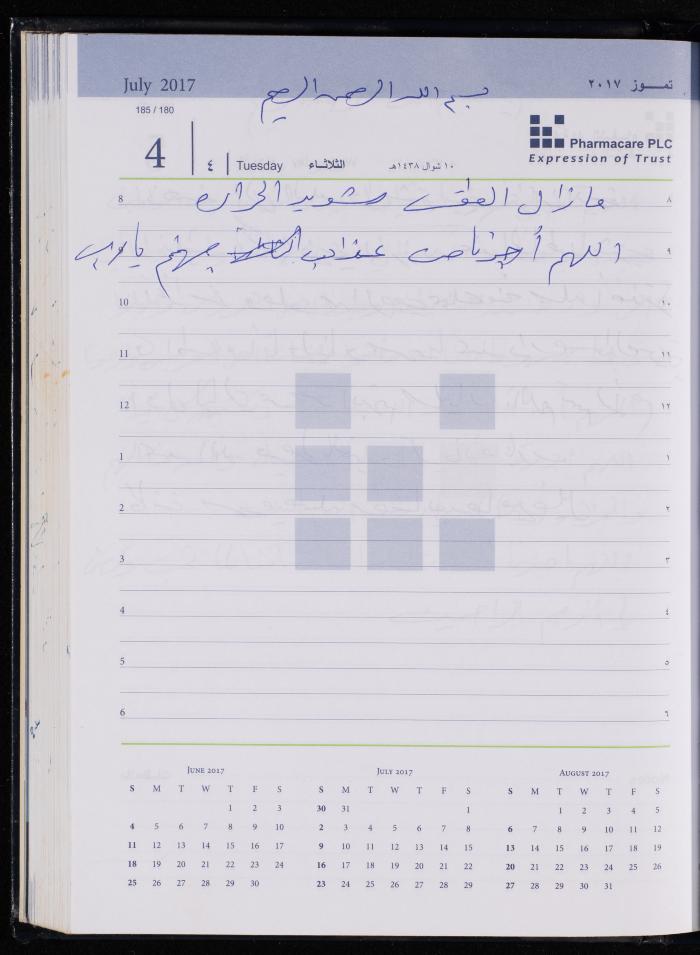 July 2017
تمـــوز ٢٠١٧
بسم الله الرحمن الرحيم
185 / 180
4
٤
Tuesday
الثلاثـــاء
١٠ شوال ١٤٣٨هـ
Pharmacare PLC
Expression of Trust
8 مازال الطقس شديد الحرارة ٨
اللهم أجرنا من عذاب جهنم يا رب ٩
10 ١٠
11 ١١
12 ١٢
1 ١
2 ٢
3 ٣
4 ٤
5 ٥
6 ٦
JUNE 2017
S M T W T F S
1 2 3
4 5 6 7 8 9 10
11 12 13 14 15 16 17
18 19 20 21 22 23 24
25 26 27 28 29 30
JULY 2017
S M T W T F S
30 31 1
2 3 4 5 6 7 8
9 10 11 12 13 14 15
16 17 18 19 20 21 22
23 24 25 26 27 28 29
AUGUST 2017
S M T W T F S
1 2 3 4 5
6 7 8 9 10 11 12
13 14 15 16 17 18 19
20 21 22 23 24 25 26
27 28 29 30 31